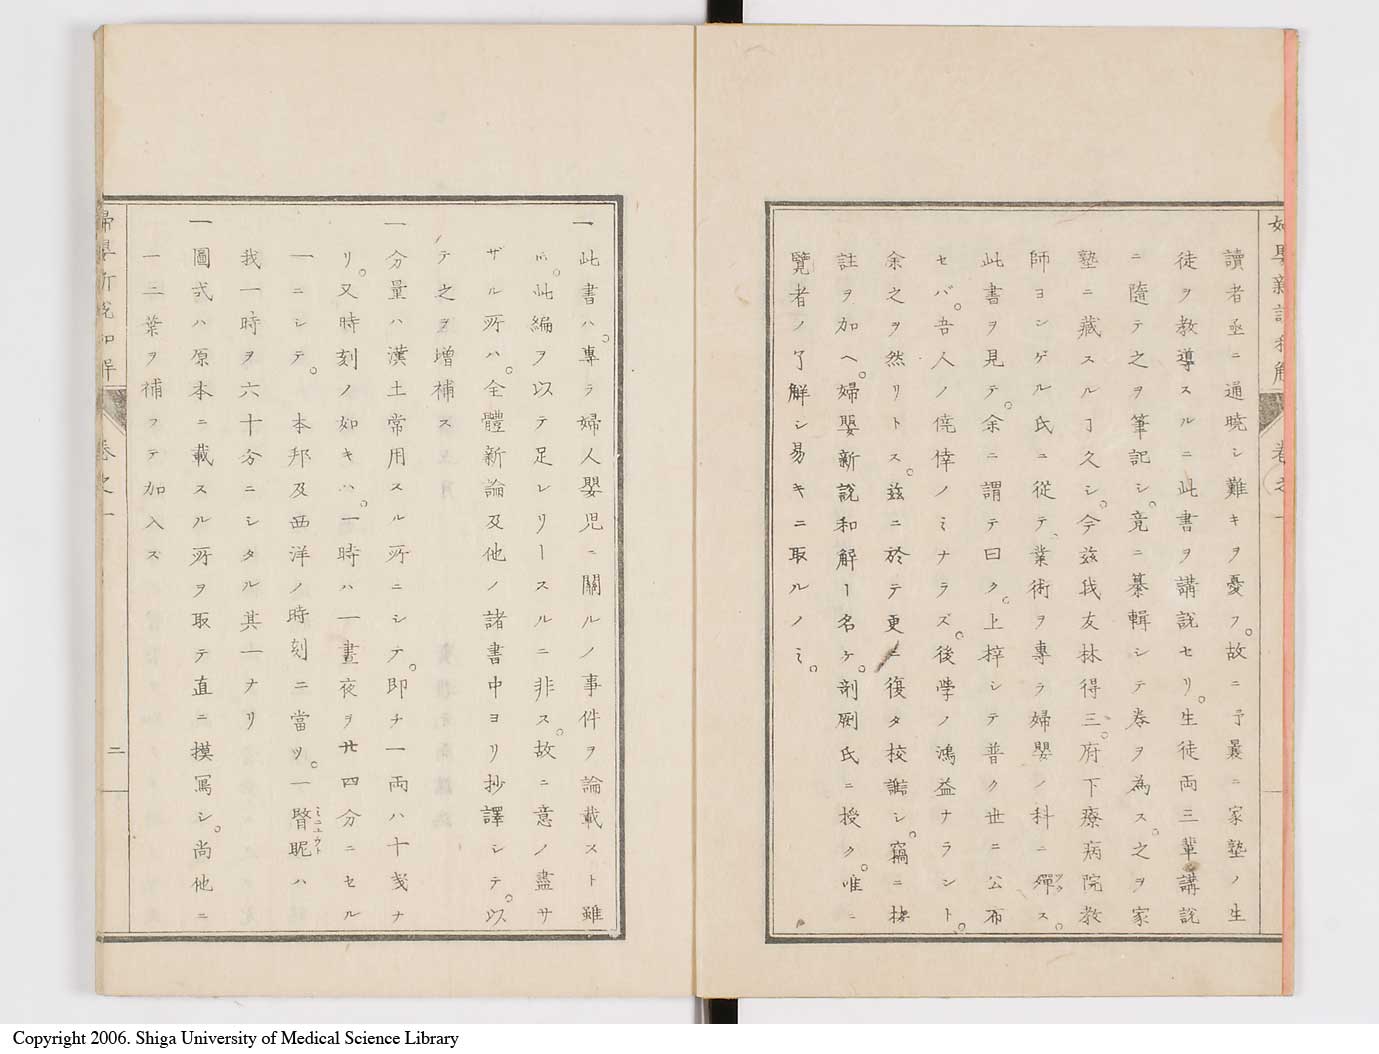 婦嬰新説和解 卷之一
讀者亟ニ通曉シ難キヲ憂フ。故ニ予曩ニ家塾ノ生
徒ヲ教導スルニ此書ヲ講説セリ。生徒両三輩講説
ニ隨テ之ヲ筆記シ。竟ニ纂輯シテ卷ヲ為ス。之ヲ家
塾ニ藏スルヿ久シ。今茲我友林得三。府下療病院教
師ヨンゲル氏ニ從テ、業術ヲ專ラ婦嬰ノ科ニ殫ツクス。
此書ヲ見テ。余ニ謂テ曰ク。上梓シテ普ク世ニ公布
セバ。吾人ノ僥倖ノミナラズ。後學ノ鴻益ナラント。
余之ヲ然リトス。茲ニ於テ更ニ復タ校讎シ。竊ニ
註ヲ加ヘ。婦嬰新説和解ト名ケ。剞劂氏ニ授ク。唯ニ
覽者ノ了解シ易キニ取ルノミ。
一 此書ハ。專ラ婦人嬰児ニ關ルノ事件ヲ論載スト雖
ㇺ。此編ヲ以テ足レリースルニ非ス。故ニ意ノ盡サ
ザル所ハ。全體新論及他ノ諸書中ヨリ抄譯シテ。以
テ之ヲ増補ス
一 分量ハ漢土常用スル所ニシテ。即チ一両ハ十戔ナ
リ。又時刻ノ如キハ。一時ハ一晝夜ヲ廿四分ニセル
一ニシテ。本邦及西洋ノ時刻ニ當ツ。一瞖眤ミニュウトハ
我一時ヲ六十分ニシタル其一ナリ
一 圖式ハ原本ニ載スル所ヲ取テ直ニ摸寫シ。尚他ニ
一二葉ヲ補フテ加入ス
婦嬰新説和解 卷之一 二
Copyright 2006. Shiga University of Medical Science Library